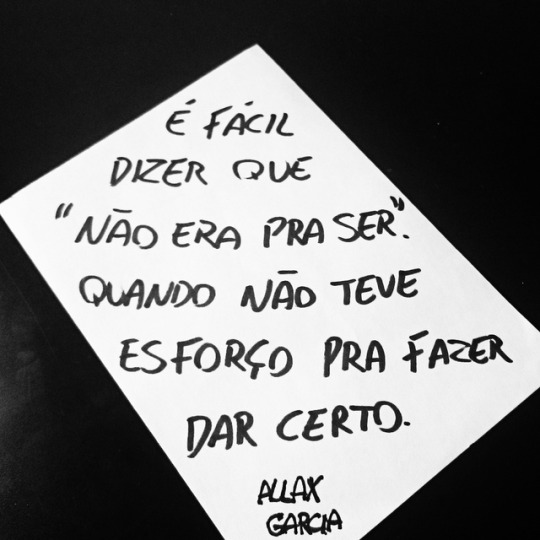 É FÁCIL
DIZER QUE
"NÃO ERA PRA SER".
QUANDO NÃO TEVE
ESFORÇO PRA FAZER
DAR CERTO.
ALLAX
GARCIA